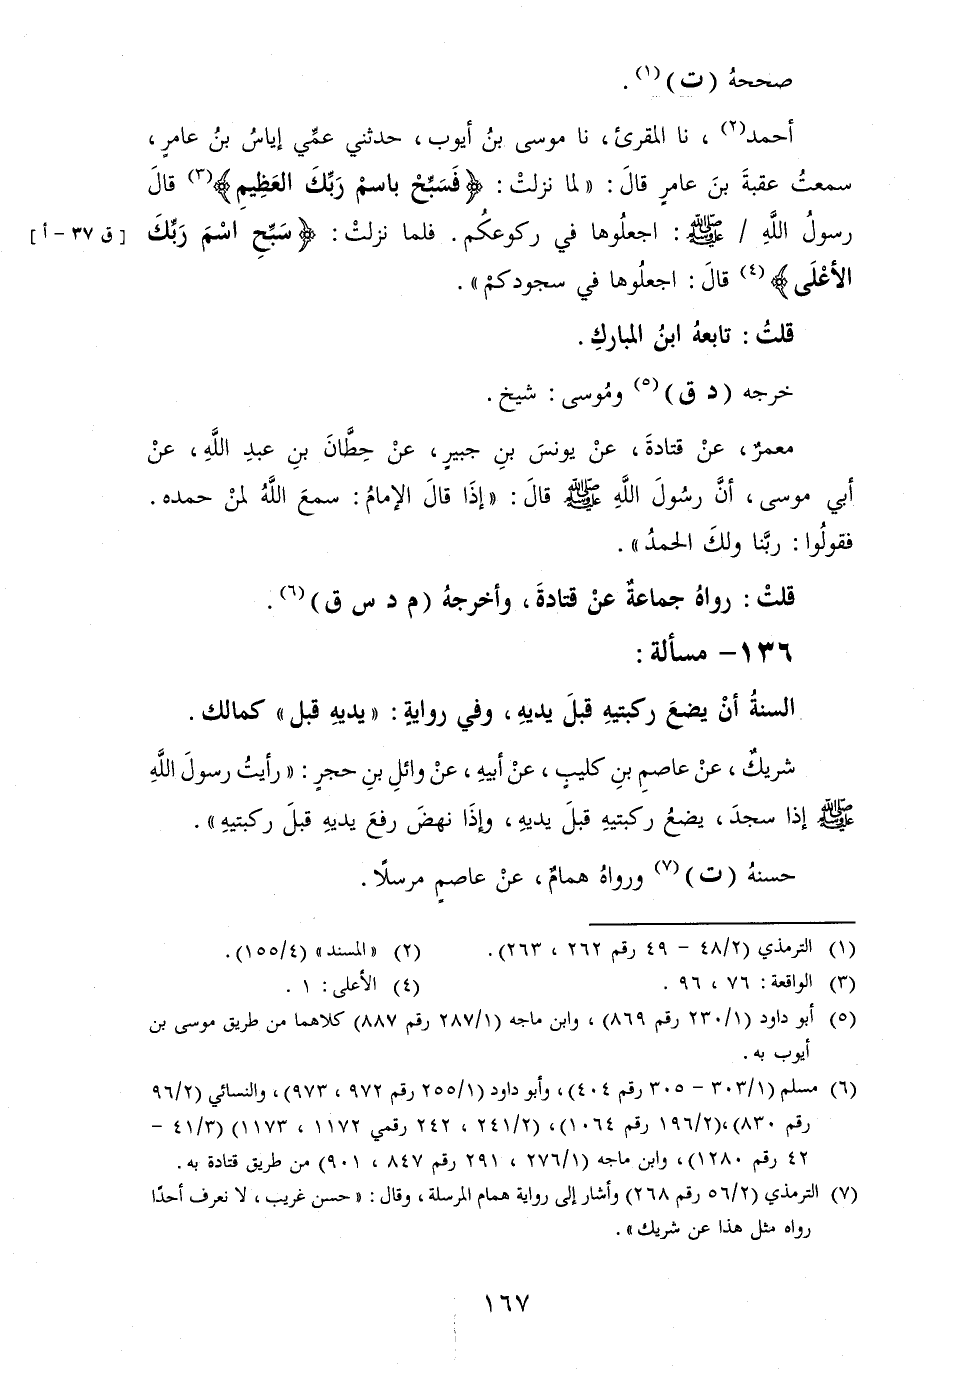 صححهُ (ت)(١) .
أحمد(٢) ، نا المقرئ، نا موسى بنُ أيوب، حدثني عمِّي إياسُ بنُ عامرٍ،
سمعتُ عقبةَ بنَ عامرٍ قالَ: «لما نزلتْ: ﴿فَسَبِّحْ باسمْ رَبِّكَ العَظِيمِ﴾(٣) قالَ
رسولُ اللَّهِ / ﷺ : اجعلُوها في ركوعكُم. فلما نزلتْ: ﴿سَبِّحِ اسْمَ رَبِّكَ [ق ٣٧ - أ]
الأعْلَى﴾(٤) قالَ: اجعلُوها في سجودكمْ».
قلتُ: تابعهُ ابنُ المباركِ.
خرجه (د ق)(٥) ومُوسى: شيخ.
معمرٌ، عنْ قتادةَ، عنْ يونسَ بنِ جبيرٍ، عنْ حِطَّانَ بنِ عبدِ اللَّهِ، عنْ
أبي موسى، أنَّ رسُولَ اللَّهِ ﷺ قالَ: «إذَا قالَ الإمامُ: سمعَ اللَّهُ لمنْ حمده.
فقولُوا: ربَّنا ولكَ الحمدُ».
قلتْ: رواهُ جماعةٌ عنْ قتادةَ، وأخرجهُ (م د س ق)(٦).
١٣٦- مسألة:
السنةُ أنْ يضعَ ركبتيهِ قبلَ يديهِ، وفي روايةٍ: «يديهِ قبل» كمالك.
شريكٌ، عنْ عاصمِ بنِ كليبٍ، عنْ أبيهِ، عنْ وائلِ بنِ حجرٍ: «رأيتُ رسولَ اللَّهِ
ﷺ إذا سجدَ، يضعُ ركبتيهِ قبلَ يديهِ، وإذَا نهضَ رفعَ يديهِ قبلَ ركبتيهِ».
حسنهُ (ت)(٧) ورواهُ همامٌ، عنْ عاصمٍ مرسلًا.
(١) الترمذي (٤٨/٢ - ٤٩ رقم ٢٦٢ ، ٢٦٣). (٢) «المسند» (١٥٥/٤).
(٣) الواقعة: ٧٦ ، ٩٦ . (٤) الأعلى: ١ .
(٥) أبو داود (٢٣٠/١ رقم ٨٦٩) ، وابن ماجه (٢٨٧/١ رقم ٨٨٧) كلاهما من طريق موسى بن
أيوب به.
(٦) مسلم (٣٠٣/١ - ٣٠٥ رقم ٤٠٤)، وأبو داود (٢٥٥/١ رقم ٩٧٢ ، ٩٧٣)، والنسائي (٩٦/٢
رقم ٨٣٠)،(١٩٦/٢ رقم ١٠٦٤)، (٢٤١/٢ ، ٢٤٢ رقمي ١١٧٢ ، ١١٧٣) (٤١/٣ -
٤٢ رقم ١٢٨٠)، وابن ماجه (٢٧٦/١ ، ٢٩١ رقم ٨٤٧ ، ٩٠١) من طريق قتادة به.
(٧) الترمذي (٥٦/٢ رقم ٢٦٨) وأشار إلى رواية همام المرسلة، وقال: «حسن غريب، لا نعرف أحدًا
رواه مثل هذا عن شريك».
١٦٧